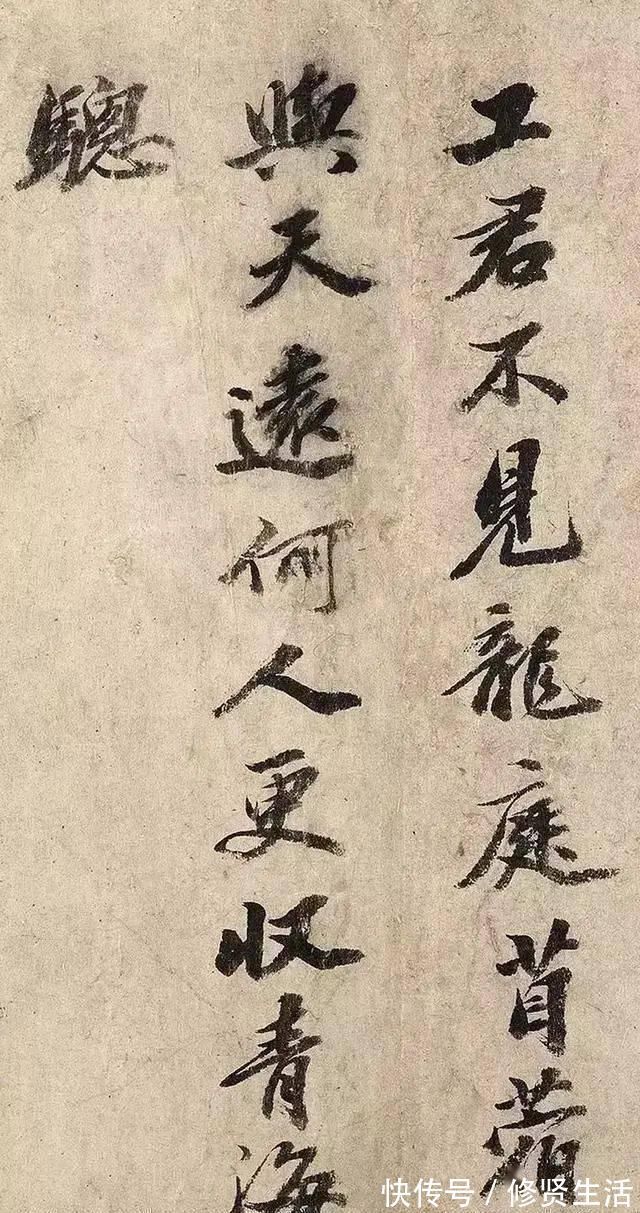 工君不見龍庭苜蓿
與天遠何人更收青海
驄
快传号 / 修贤生活